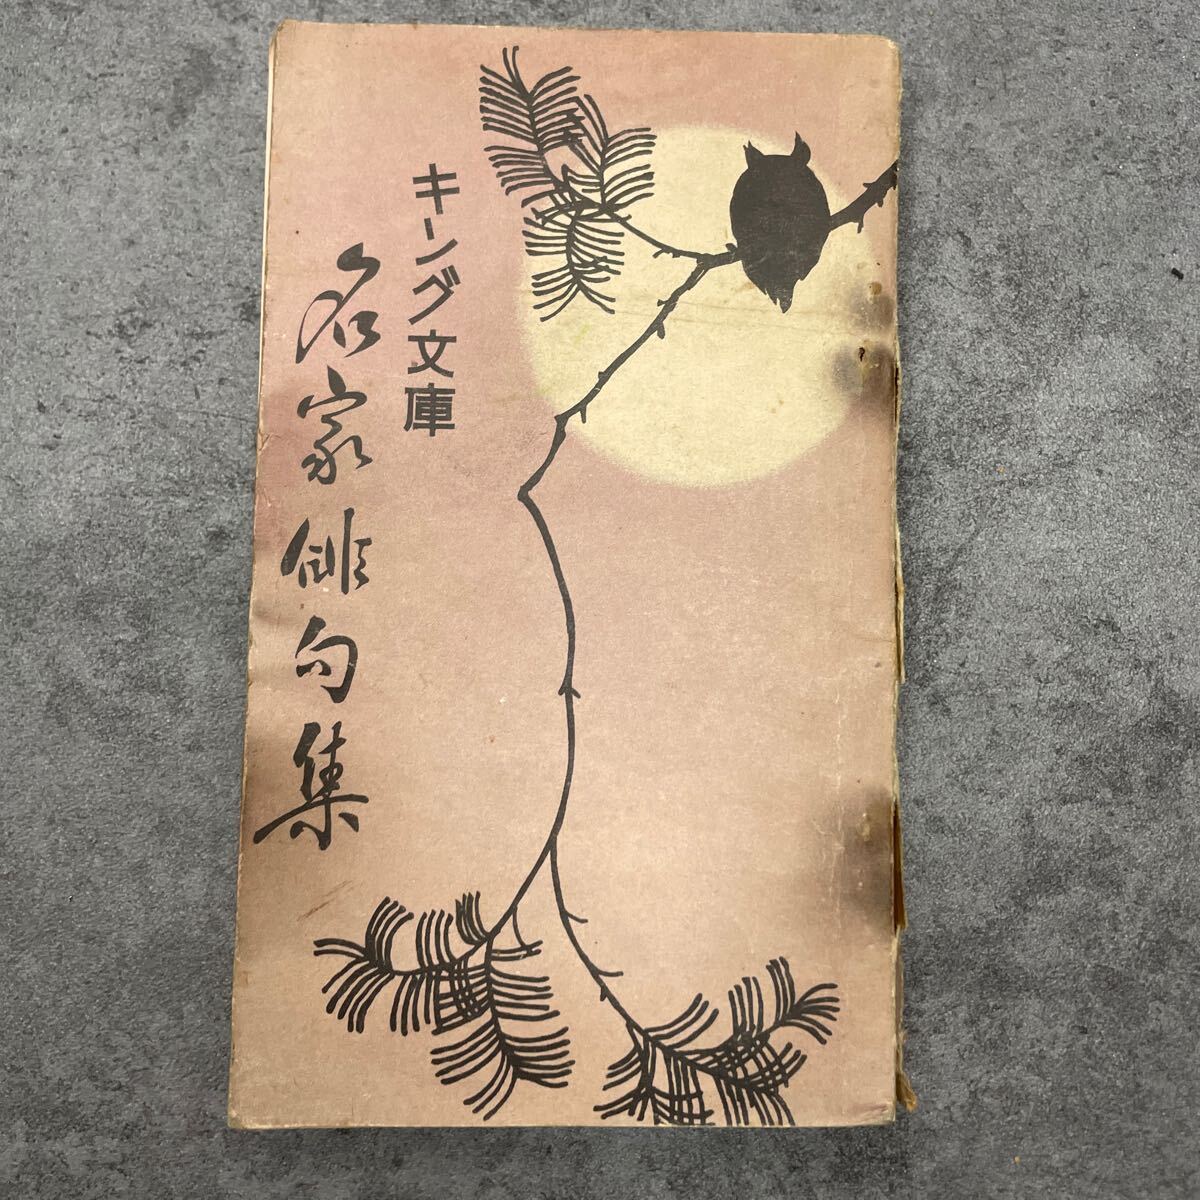 キング文庫
名家俳句集